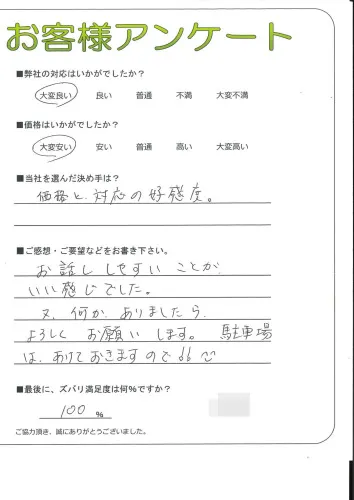 お客様アンケート
■弊社の対応はいかがでしたか?
大変良い 良い 普通 不満 大変不満
■価格はいかがでしたか?
大変安い 安い 普通 高い 大変高い
■当社を選んだ決め手は?
価格と対応の好感度。
■ご感想・ご要望などをお書き下さい。
お話ししやすいことが
いい感じでした。
又、何かありましたら
よろしくお願いします。駐車場
は、あけておきますので!!
■最後に、ズバリ満足度は何%ですか?
100%
ご協力頂き、誠にありがとうございました。